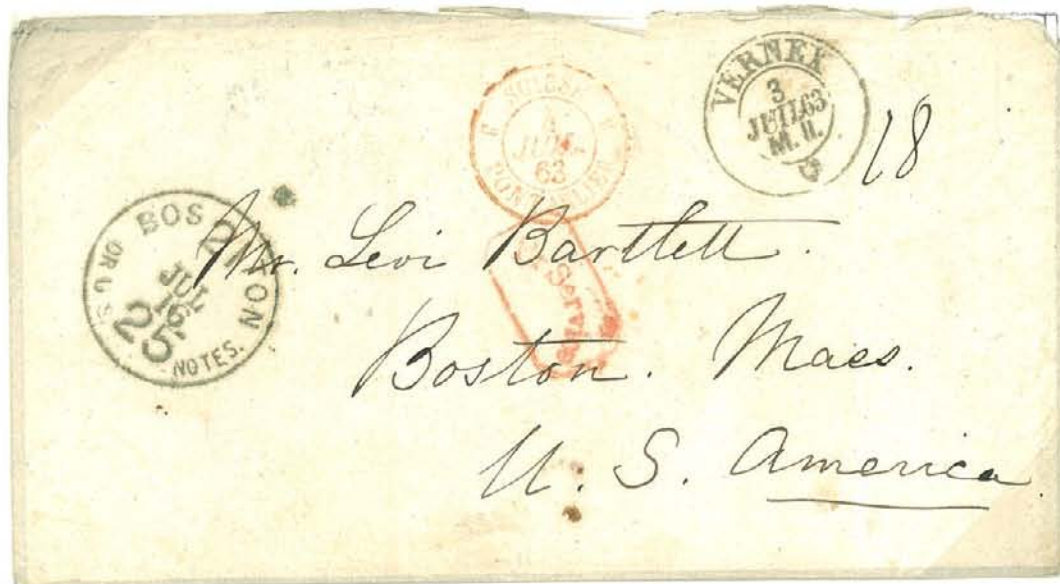 VERNEX
3
JUIL 63
M. II.
SUISSE
4
JUIL
63
PONTARLIER
18
BOSTON
21
JUL
25
OR U.S. NOTES.
Br. Service
Mr. Levi Bartlett.
Boston. Mass.
U. S. America